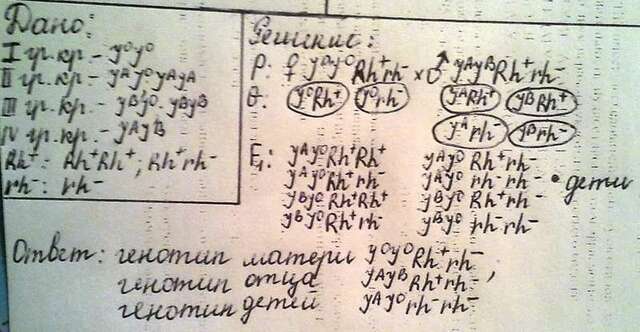 Дано:
I гр.кр - y⁰y⁰
II гр.кр - yᴬy⁰ yᴬyᴬ
III гр.кр - yᴮy⁰. yᴮyᴮ
IV гр.кр - yᴬyᴮ
Rh⁺: Rh⁺Rh⁺; Rh⁺rh⁻
rh⁻: rh⁻
Решение:
P: ♀ y⁰y⁰Rh⁺rh⁻ × ♂ yᴬyᴮRh⁺rh⁻
G: y⁰Rh⁺ y⁰rh⁻ yᴬRh⁺ yᴮRh⁺
yᴬrh⁻ yᴮrh⁻
F₁: yᴬy⁰Rh⁺Rh⁺ yᴬy⁰ Rh⁺rh⁻
yᴬy⁰Rh⁺rh⁻ yᴬy⁰ rh⁻rh⁻ • дети
yᴮy⁰Rh⁺Rh⁺ yᴮy⁰ Rh⁺rh⁻
yᴮy⁰Rh⁺rh⁻ yᴮy⁰ rh⁻rh⁻
Ответ: генотип матери y⁰y⁰Rh⁺rh⁻;
генотип отца yᴬyᴮRh⁺rh⁻
генотип детей yᴬy⁰rh⁻rh⁻